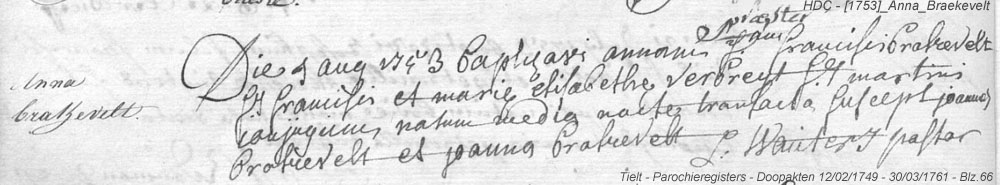 HDC - [1753]_Anna_Braekevelt
Anna
brakevelt.
Die 4 aug 1753 baptizavi annam f. francisci brakevelt
fs francisci et marie elisabethe verbreyt fs martini
conjugum natam media nocte transacta suscept joannes
brakevelt et joanna brakevelt L. Wauters pastor
Tielt - Parochieregisters - Doopakten 12/02/1749 - 30/03/1761 - Blz.66